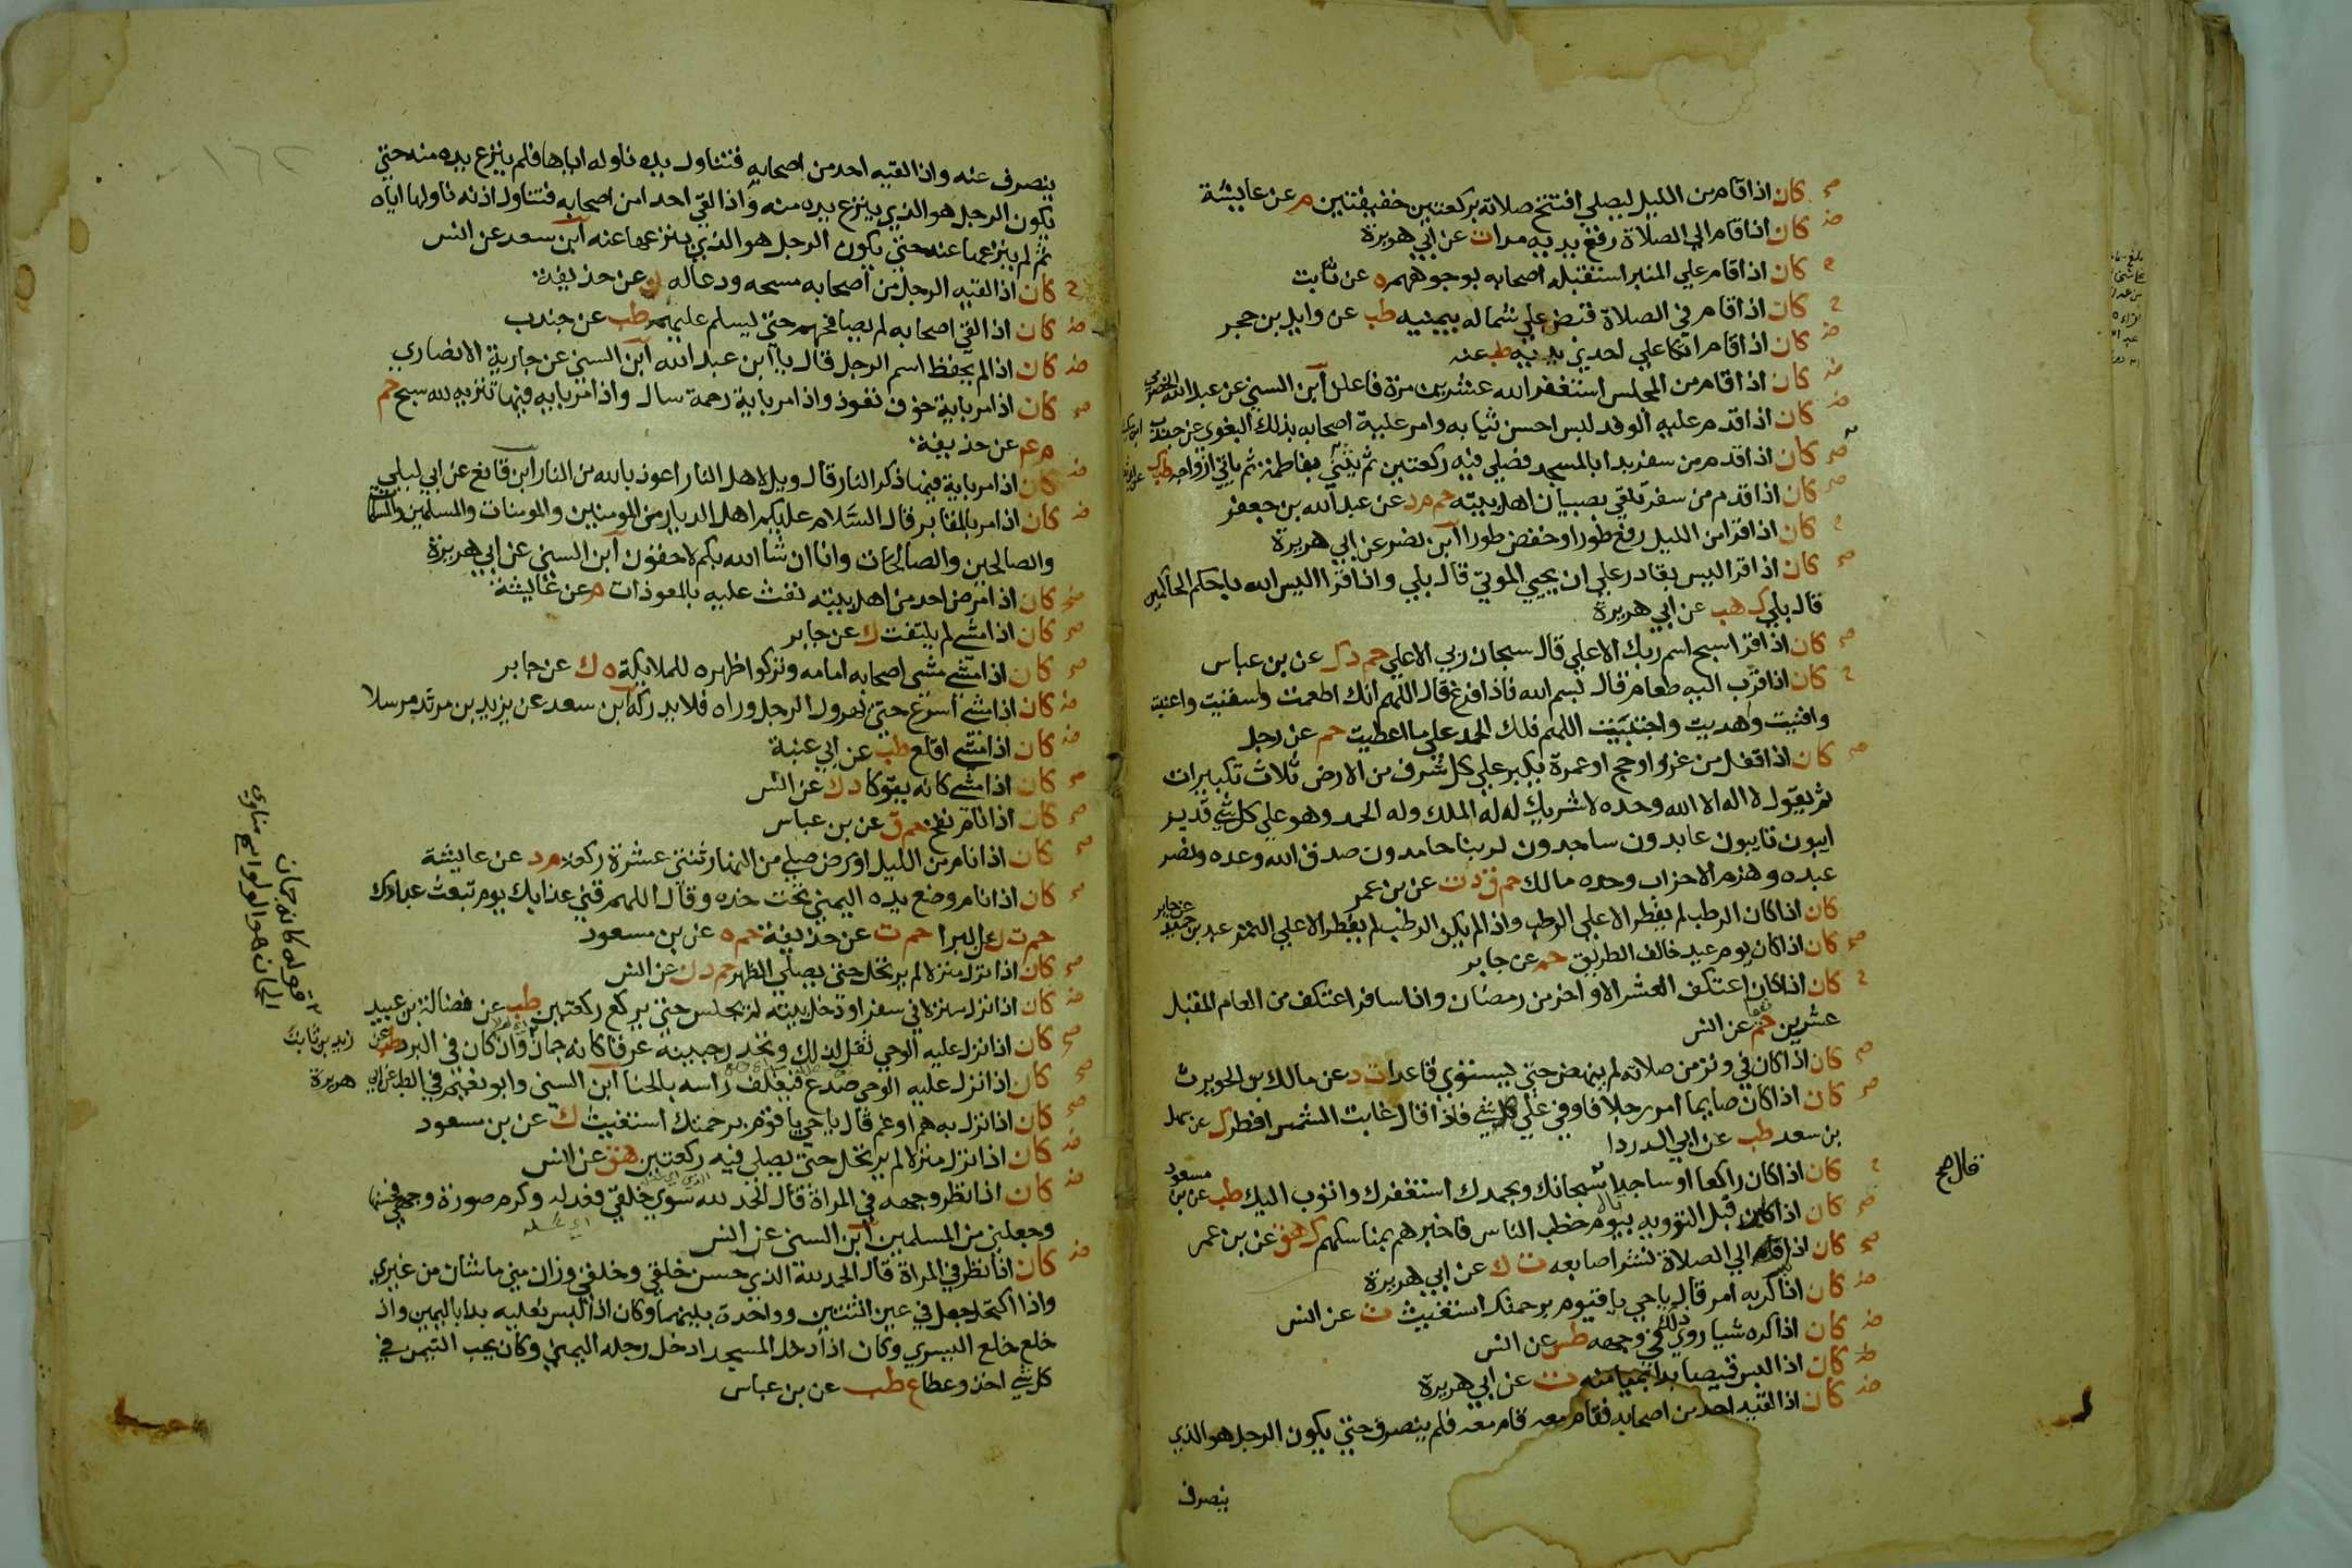 كان اذا قام من الليل ليصلي افتتح صلاته بركعتين خفيفتين م عن عايشة
كان اذا قام الي الصلاة رفع يديه مدا ت عن ابي هريرة
كان اذا قام علي المنبر استقبله اصحابه بوجوههم ه عن ثابت
كان اذا قام في الصلاة قبض علي شماله بيمينه طب عن وايل بن حجر
كان اذا قام اتكا علي احدي يديه طب عنه
كان اذا قام من المجلس استغفر الله عشرين مرة فاعلن ابن السني عن عبد الله الحضرمي
كان اذا قدم عليه الوفد لبس احسن ثيابه وامر علية اصحابه بذلك البغوي عن جندب
كان اذا قدم من سفر بدا بالمسجد فصلي فيه ركعتين ثم يثني بفاطمة ثم ياتي ازواجه طب ك
كان اذا قدم من سفر تلقي بصبيان اهل بيته حم م د عن عبد الله بن جعفر
كان اذا قرا من الليل رفع طورا وخفض طورا ابن نصر عن ابي هريرة
كان اذا قرا اليس بقادر علي ان يحيي الموتي قال بلي واذا قرا اليس الله باحكم الحاكمين
قال بلي ك هب عن ابي هريرة
كان اذا قرا سبح اسم ربك الاعلي قال سبحان ربي الاعلي حم د ك عن بن عباس
كان اذا قرب اليه طعام قال بسم الله فاذا فرغ قال اللهم انك اطعمت واسقيت واغنيت
واقنيت وهديت واجتبيت اللهم فلك الحمد علي ما اعطيت حم عن رجل
كان اذا قفل من غزو او حج او عمرة يكبر علي كل شرف من الارض ثلاث تكبيرات
ثم يقول لا اله الا الله وحده لا شريك له له الملك وله الحمد وهو علي كل شي قدير
ايبون تايبون عابدون ساجدون لربنا حامدون صدق الله وعده ونصر
عبده وهزم الاحزاب وحده مالك حم ق د ت عن بن عمر
كان اذا كان الرطب لم يفطر الا علي الرطب واذا لم يكن الرطب لم يفطر الا علي التمر عبد بن حميد عن جابر
كان اذا كان يوم عيد خالف الطريق حم عن جابر
كان اذا كان اعتكف العشر الاواخر من رمضان واذا سافر اعتكف من العام المقبل
عشرين حم عن انس
كان اذا كان في وتر من صلاته لم ينهض حتي يستوي قاعدا ت د عن مالك بن الحويرث
كان اذا كان صايما امر رجلا فاوفي علي كل شي فاذا قال غابت الشمس افطر ك عن سهل
بن سعد طب عن ابي الدردا
كان اذا كان راكعا او ساجدا سبحانك وبحمدك استغفرك واتوب اليك طب عن بن مسعود
قال صح
كان اذا كان قبل التروية بيوم خطب الناس فاخبرهم بمناسكهم ك هق عن بن عمر
كان اذا قام الي الصلاة نشر اصابعه ت ك عن ابي هريرة
كان اذا كربه امر قال يا حي يا قيوم برحمتك استغيث ت عن انس
كان اذا كره شيا روي ذلك في وجهه طس عن انس
كان اذا لبس قميصا بدا بميامنه ت عن ابي هريرة
كان اذا لقيه احد من اصحابه فقام معه قام معه فلم ينصرف حتي يكون الرجل هو الذي
ينصرف
ينصرف عنه واذا لقيه احد من اصحابه فتناول يده ناوله اياها فلم ينزع يده منه حتي
يكون الرجل هو الذي ينزع يده منه واذا لقي احدا من اصحابه فتناول اذنه ناولها اياه
ثم لم ينزعها عنه حتي يكون الرجل هو الذي ينزعها عنه ابن سعد عن انس
كان اذا لقيه الرجل من اصحابه مسحه ودعا له ن عن حذيفة
كان اذا لقي اصحابه لم يصافحهم حتي يسلم عليهم طب عن جندب
كان اذا لم يحفظ اسم الرجل قال يا ابن عبد الله ابن السني عن جارية الانصاري
كان اذا مر باية خوف تعوذ واذا مر باية رحمة سال واذا مر باية فيها تنزيه لله سبح حم
م عم عن حذيفة
كان اذا مر باية فيها ذكر النار قال ويل لاهل النار اعوذ بالله من النار ابن قانع عن ابي ليلي
كان اذا مر بالمقابر قال السلام عليكم اهل الديار من المومنين والمومنات والمسلمين والمسلمات
والصالحين والصالحات وانا ان شا الله بكم لاحقون ابن السني عن ابي هريرة
كان اذا مرض احد من اهل بيته نفث عليه بالمعوذات م عن عايشة
كان اذا مشي لم يلتفت ك عن جابر
كان اذا مشي مشي اصحابه امامه وتركوا ظهره للملايكة ه ك عن جابر
كان اذا مشي اسرع حتي يهرول الرجل وراه فلا يدركه ابن سعد عن يزيد بن مرثد مرسلا
كان اذا مشي اقلع طب عن ابي عنبة
كان اذا مشي كانه يتوكا د ك عن انس
كان اذا نام نفخ حم ق عن بن عباس
كان اذا نام من الليل او مرض صلي من النهار ثنتي عشرة ركعة م د عن عايشة
كان اذا نام وضع يده اليمني تحت خده وقال اللهم قني عذابك يوم تبعث عبادك
حم ت ن عن البرا حم ت عن حذيفة حم ه عن بن مسعود
كان اذا نزل منزلا لم يرتحل حتي يصلي الظهر حم د ن عن انس
كان اذا نزل منزلا في سفر او دخل بيته لم يجلس حتي يركع ركعتين طب عن فضالة بن عبيد
كان اذا نزل عليه الوحي ثقل لذلك وتحدر جبينه عرقا كانه جمان وان كان في البرد طب عن زيد بن ثابت
كان اذا نزل عليه الوحي صدع فيغلف راسه بالحنا ابن السني وابو نعيم في الطب عن ابي هريرة
كان اذا نزل به هم او غم قال يا حي يا قيوم برحمتك استغيث ك عن بن مسعود
كان اذا نزل منزلا لم يرتحل حتي يصلي فيه ركعتين هق عن انس
كان اذا نظر وجهه في المراة قال الحمد لله سوي خلقي فعدله وكرم صورة وجهي فحسنها
وجعلني من المسلمين ابن السني عن انس
كان اذا نظر في المراة قال الحمد لله الذي حسن خلقي وخلقي وزان مني ما شان من غيري
واذا اكتحل جعل في عين اثنتين وواحدة بينهما وكان اذا لبس نعليه بدا باليمين واذا
خلع خلع اليسري وكان اذا دخل المسجد ادخل رجله اليمني وكان يحب التيمن في
كل شي اخذ وعطا ع طب عن بن عباس
قوله كانه جمان
الجمان هو اللولو اهـ مناوي